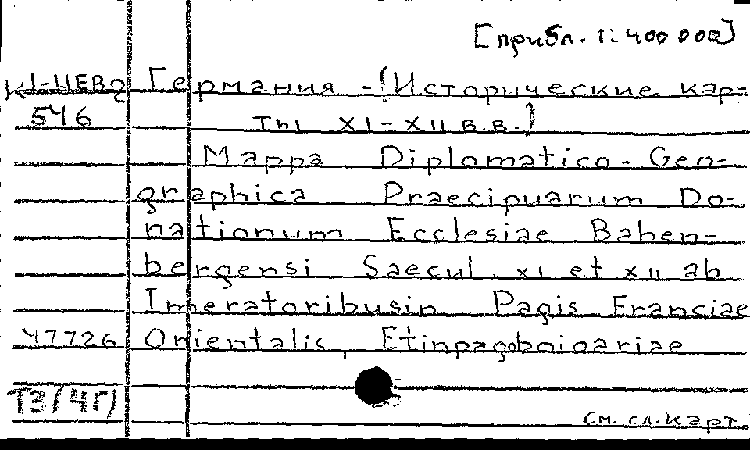 [прибл. 1:400 000]
К1-ЦЕВ2 Германия - [Исторические кар-
546 ты XI-XII в.в.]
Mappa Diplomatico-Geo-
graphica Praecipuarum Do-
nationum Ecclesiae Baben-
bergensi Saecul. XI et XII ab
Imperatoribusin Pagis Franciae
47726 Orientalis, Etinpagoboioariae
Т3(4Г)
см. сл. карт.